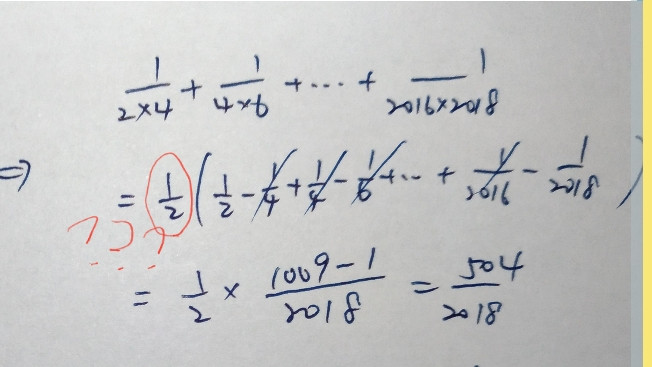 1/(2×4) + 1/(4×6) + ... + 1/(2016×2018)
⇒ = 1/2 ( 1/2 - 1/4 + 1/4 - 1/6 + ... + 1/2016 - 1/2018 )
???
= 1/2 × (1009-1)/2018 = 504/2018